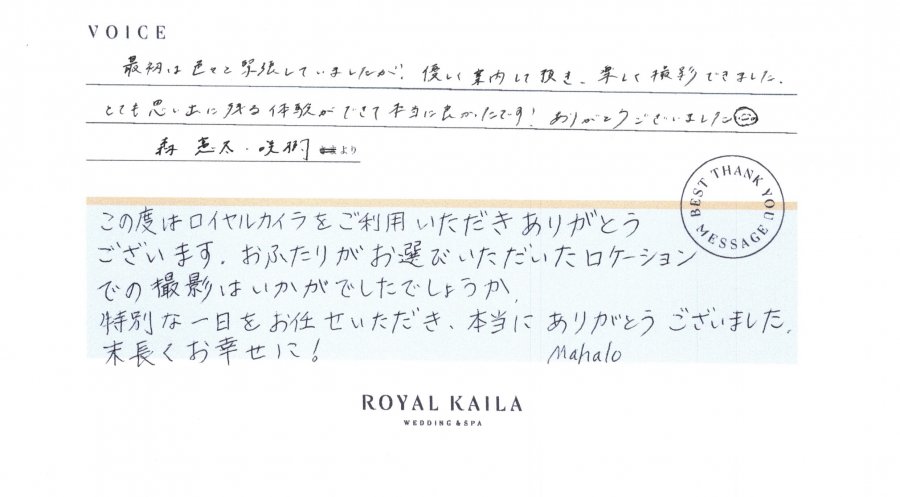 VOICE
最初は色々と緊張していましたが、優しく案内して頂き、楽しく撮影できました。
とても思い出に残る体験ができて本当に良かったです！ ありがとうございました
森 太・咲 より
BEST THANK YOU MESSAGE
この度はロイヤルカイラをご利用いただきありがとう
ございます。おふたりがお選びいただいたロケーション
での撮影はいかがでしたでしょうか。
特別な一日をお任せいただき、本当に ありがとう ございました。
末長くお幸せに！ Mahalo
ROYAL KAILA
WEDDING & SPA